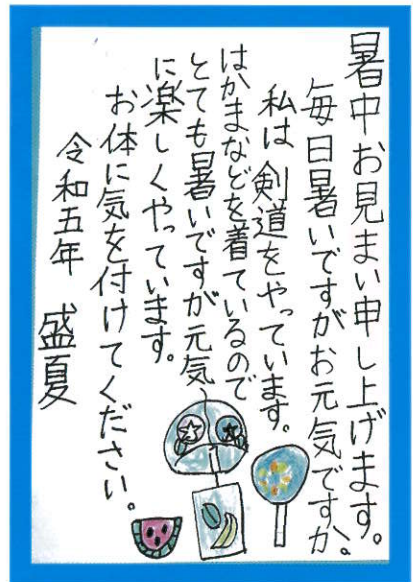 暑中お見まい申し上げます。
毎日暑いですがお元気ですか。
私は剣道をやっています。
はかまなどを着ているので
とても暑いですが元気
に楽しくやっています。
お体に気を付けてください。
令和五年 盛夏